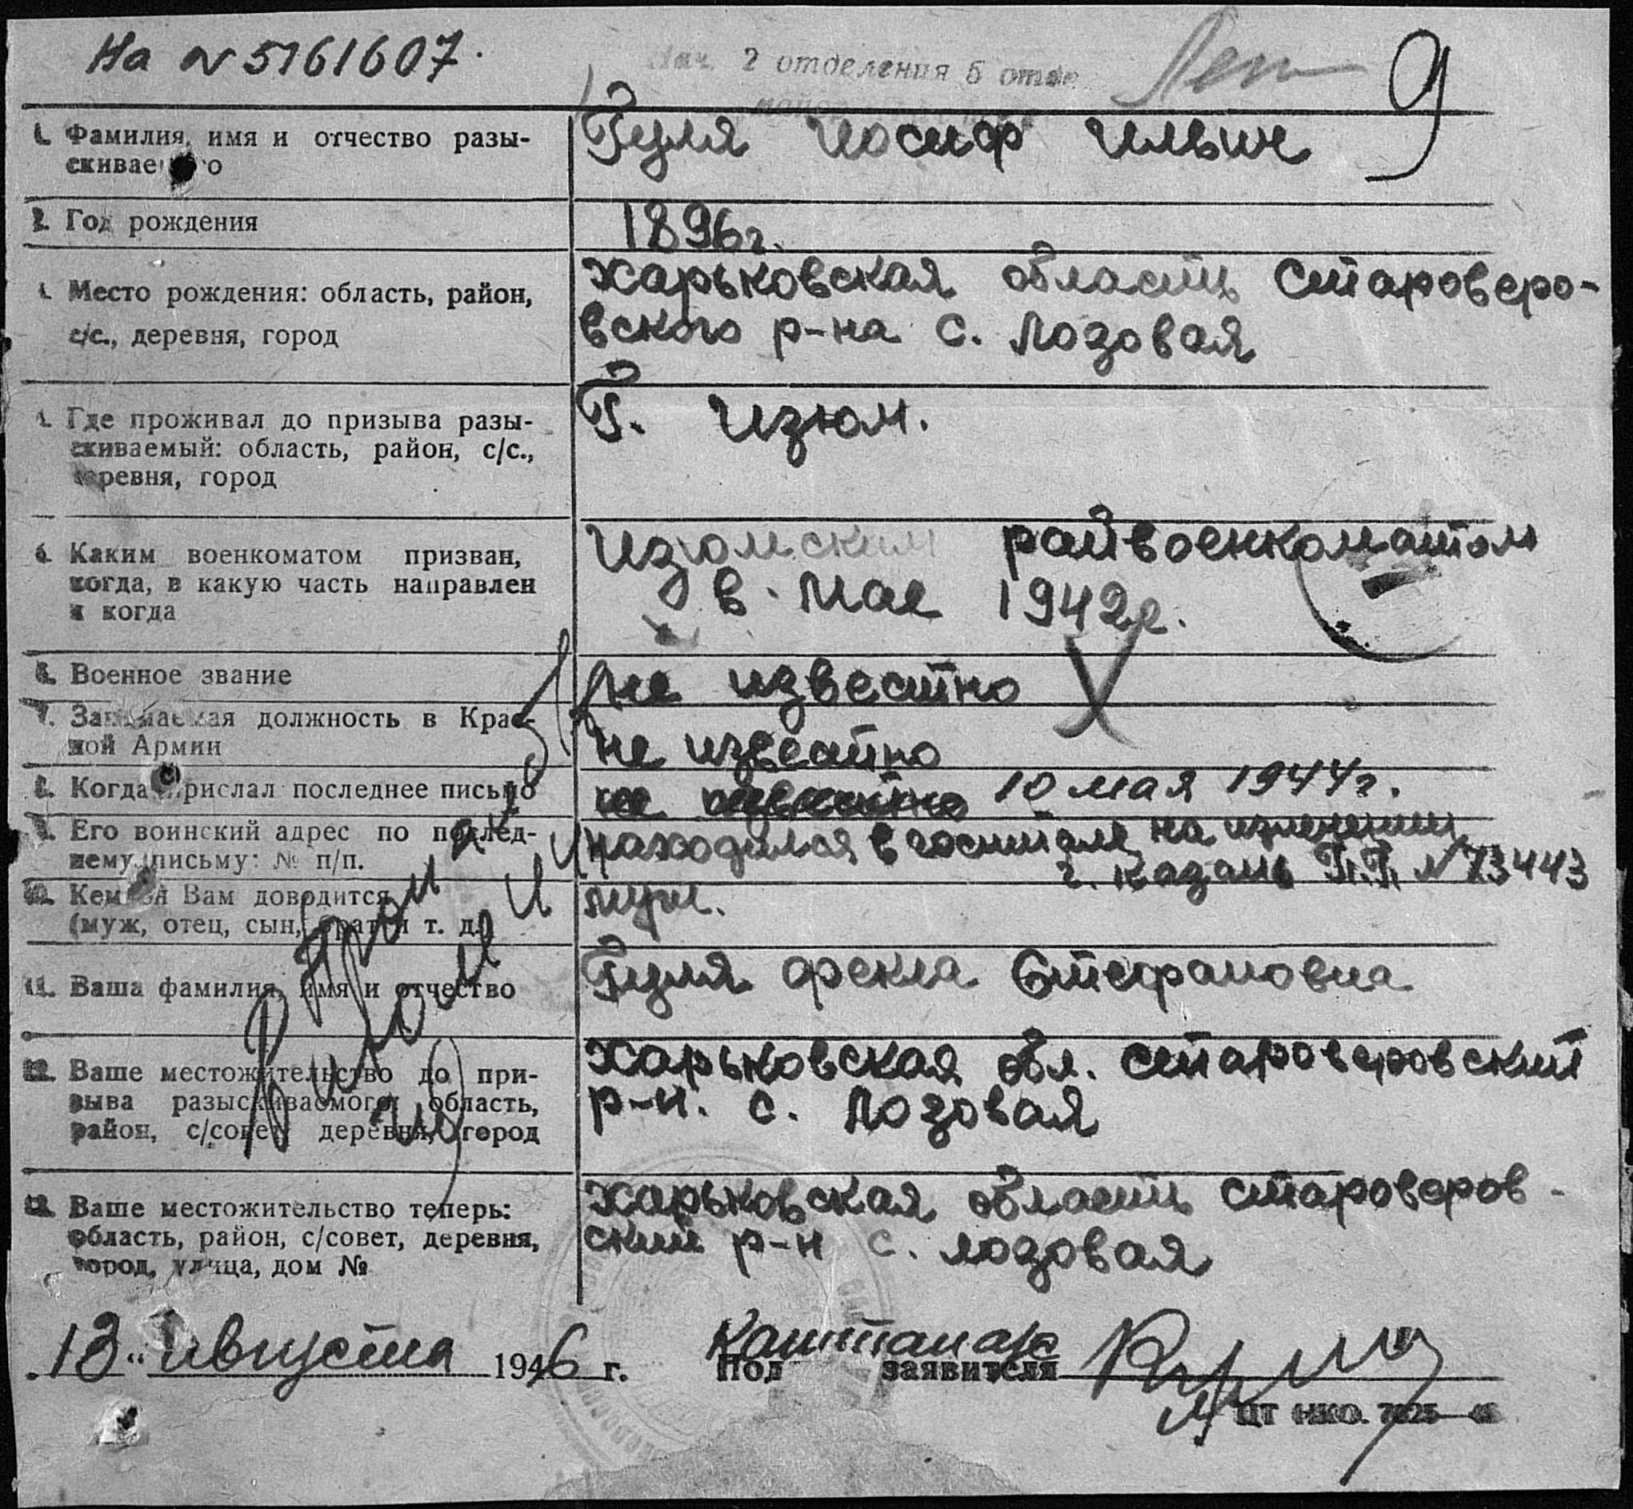 На № 5161607.
2 отделения 6 отде
9
1. Фамилия, имя и отчество разы-
скиваемого
Гуля Иосиф Ильич
2. Год рождения
1896г.
Место рождения: область, район,
с/с., деревня, город
Харьковская область Староверо-
вского р-на с. Лозовая
Где проживал до призыва разы-
скиваемый: область, район, с/с.,
деревня, город
Г. Изюм.
Каким военкоматом призван,
когда, в какую часть направлен
и когда
Изюмским райвоенкоматом
в мае 1942г.
Военное звание
не известно
7. Занимаемая должность в Крас-
ной Армии
не известно
Когда прислал последнее письмо
не известно 10 мая 1944г.
Его воинский адрес по послед-
нему письму: № п/п.
находился в госпитале на излечении
г. Казань П.П. № 73443
10. Кем он Вам доводится
(муж, отец, сын, брат и т. д.)
муж.
11. Ваша фамилия, имя и отчество
Гуля Фекла Стефановна
12. Ваше местожительство до при-
зыва разыскиваемого: область,
район, с/совет, деревня, город
Харьковская обл. Староверовский
р-н. с. Лозовая
13. Ваше местожительство теперь:
область, район, с/совет, деревня,
город, улица, дом №
Харьковская область Староверов-
ский р-н с. Лозовая
„13“ августа 1946 г.
Под заявителя
ЦТ НКО.